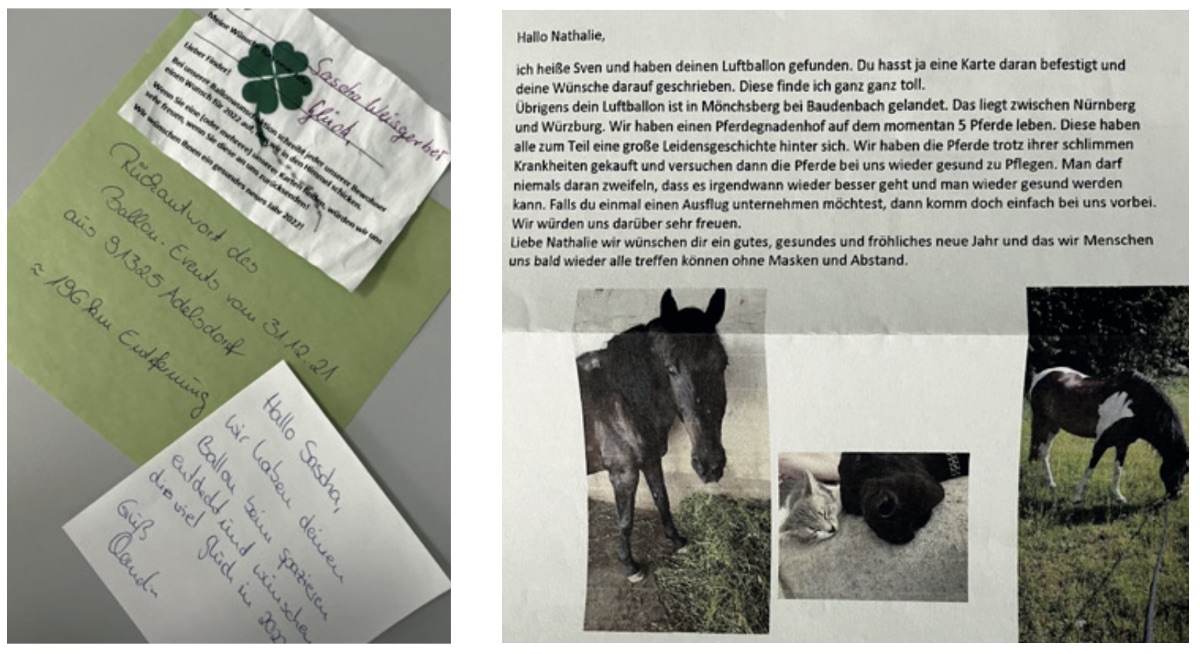 Meine Wünsche
Sascha Weisgerber
Glück
Lieber Finder!
Bei unserer Ballonaktion schreibt jeder unserer Bewohner
einen Wunsch für 2022 auf, den wir in den Himmel schicken.
Wenn Sie eine (oder mehrere) unserer Karten finden, würden wir uns
sehr freuen, wenn Sie diese an uns zurücksenden!
Wir wünschen Ihnen ein gesundes neues Jahr 2022!
Rückantwort des
Ballon-Events vom 31.12.21
aus 91325 Adelsdorf
≈ 196 km Entfernung
Hallo Sascha,
wir haben deinen
Ballon beim spazieren
entdeckt und wünschen
dir viel Glück in
Gruß
Hallo Nathalie,
ich heiße Sven und haben deinen Luftballon gefunden. Du hasst ja eine Karte daran befestigt und
deine Wünsche darauf geschrieben. Diese finde ich ganz ganz toll.
Übrigens dein Luftballon ist in Mönchsberg bei Baudenbach gelandet. Das liegt zwischen Nürnberg
und Würzburg. Wir haben einen Pferdegnadenhof auf dem momentan 5 Pferde leben. Diese haben
alle zum Teil eine große Leidensgeschichte hinter sich. Wir haben die Pferde trotz ihrer schlimmen
Krankheiten gekauft und versuchen dann die Pferde bei uns wieder gesund zu Pflegen. Man darf
niemals daran zweifeln, dass es irgendwann wieder besser geht und man wieder gesund werden
kann. Falls du einmal einen Ausflug unternehmen möchtest, dann komm doch einfach bei uns vorbei.
Wir würden uns darüber sehr freuen.
Liebe Nathalie wir wünschen dir ein gutes, gesundes und fröhliches neue Jahr und das wir Menschen
uns bald wieder alle treffen können ohne Masken und Abstand.